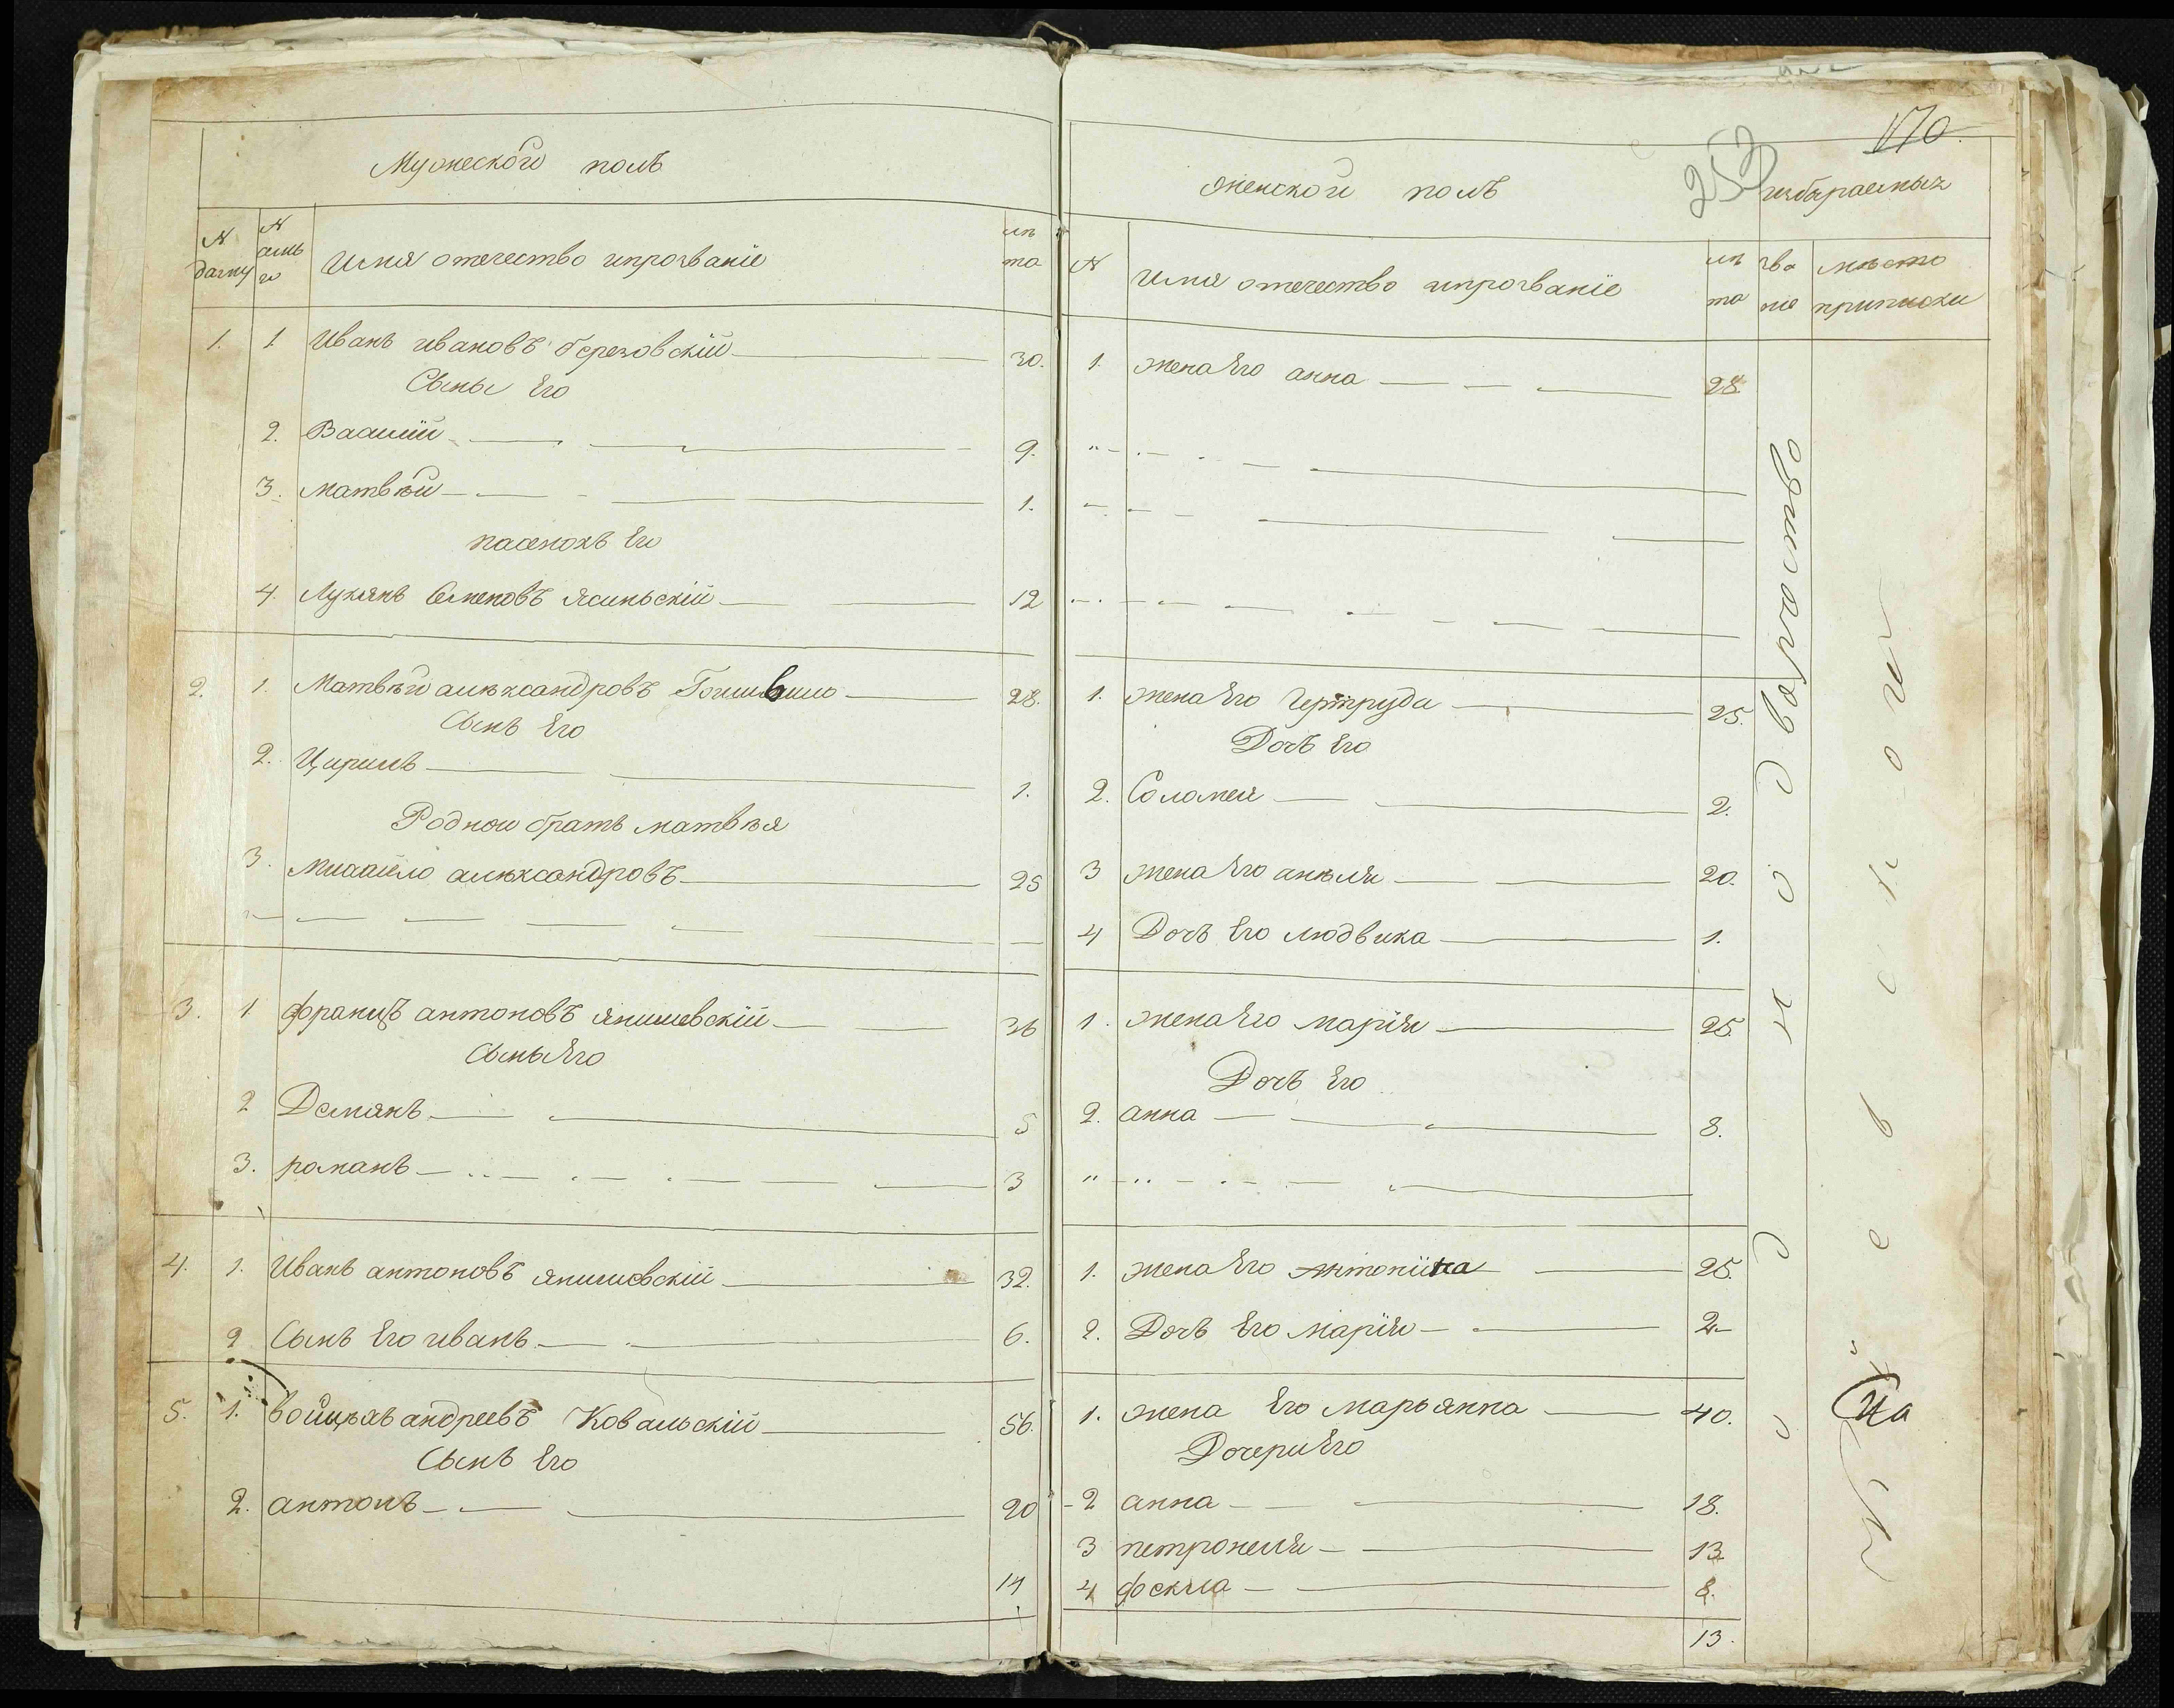 Мужеской полъ
N дачну
N аимь го
Имя отечество ипрозваніе
лѣ та
1. 1 Иванъ ивановъ березовскій 30.
Сыны Его
2. Василій 9.
3. матвѣй 1.
пасенокъ Его
4. Лукянъ Семеновъ Ясиньскій 12
2. 1. Матвѣй алѣксандровъ 28.
Сынъ Его
2. Цирилъ 1.
Родной братъ матвѣя
3. михайло алѣксандровъ 25
3. 1 францъ антоновъ янишевскій 36
Сыны Его
2 Демянъ 5
3. романъ 3
4. 1. Иванъ антоновъ янишевскій 32.
2 Сынъ Его иванъ 6.
5. 1. войцѣхъ андреевъ Ковальскій 56.
Сынъ Его
2. антонъ 20
14
170.
253
женской полъ
избираемыхъ
N
Имя отечество ипрозваніе
лѣ та
зва ніе
мѣсто приписки
1. жена Его анна 28.
1. жена Его Гертруда 25.
Дочь Его
2. Соломея 2.
3 жена Его анѣля 20.
4 Дочь Его людвика 1.
1. жена Его марія 25.
Дочь Его
2. анна 8.
1. жена Его Антонина 25.
2. Дочь Его марія 2
1. жена Его марьянна 40.
Дочери Его
2 анна 18.
3 петронеля 13
4 фекла 8.
13.
дворянство